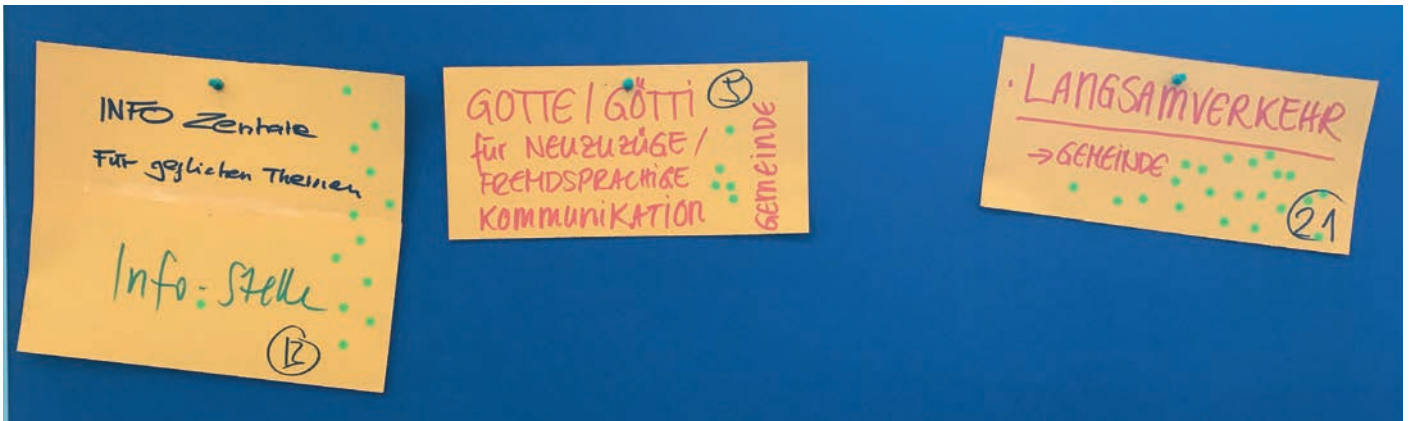 INFO Zentrale
Für jeglichen Themen
Info-Stelle
12
GOTTE / GÖTTI
für NEUZUZÜGE /
FREMDSPRACHIGE
KOMMUNIKATION
GEMEINDE
5
· LANGSAMVERKEHR
→ GEMEINDE
21